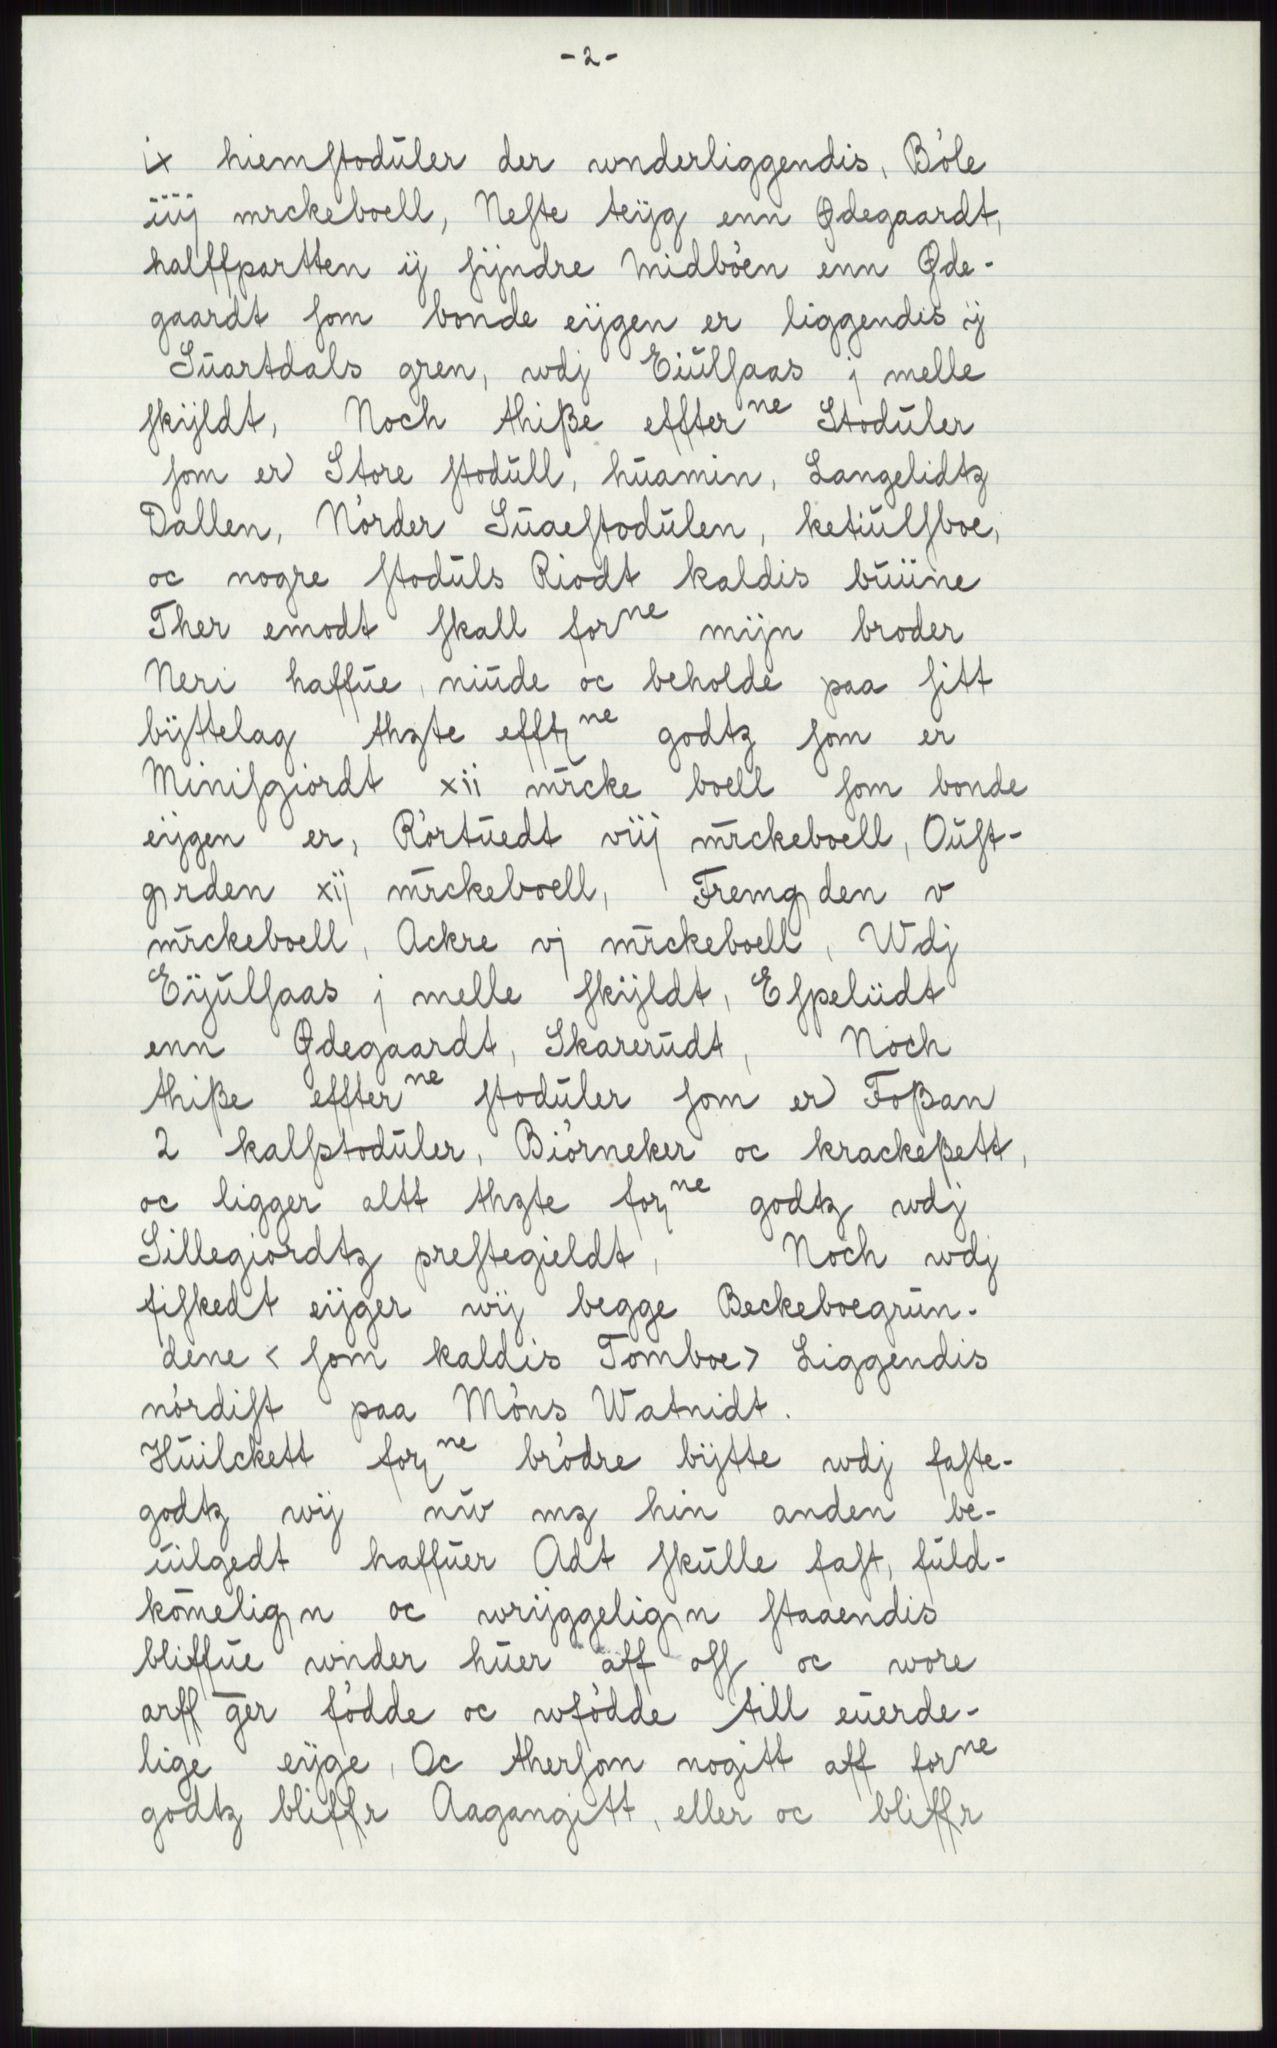 - 2 -
ix hiemstodūler der wnderliggendis, Bóle
iiij mrckeboell, Neste teÿg enn Ødegaardt,
halffpartten ij sÿndre Midbóen enn Øde-
gaardt som bonde eÿgen er liggendis ÿ
Sūartdals gren, wdj Eiūlsaas j melle
skÿldt, Noch thiße effter ⁿᵉ Stodūler
som er Store stodūll, hūamin, Langelidtz
Dallen, Nórder Sūaestodūlen, ketiūlsboe,
oc nogre stodūls Riodt kaldis būiine
Ther emodt skall for ⁿᵉ mijn broder
Neri haffūe, niūde oc beholde paa sitt
bÿttelag thzte efftꝫ ⁿᵉ godtz som er
Minisgiordt xii mr̄cke boell som bonde
eÿgen er, Rórtūedt viij mr̄ckeboell, Oūst-
gꝛrden xij mr̄ckeboell, Fremgꝛden v
mr̄ckeboell, Ackre vj mr̄ckeboell, Wdj
Eÿūlsaas j melle skÿldt, Espeliidt
enn Ødegaardt, Skarerūdt, Noch
thiße effter ⁿᵉ stodūler som er Foßan
2 kalfstodūler, Biórneker oc krackeßett,
oc ligger altt thzte forꝫ ⁿᵉ godtz wdj
Sillegiordtz prestegieldt, Noch wdj
fiskedt eÿger wÿ begge Beckeboegrūn-
dene < som kaldis Tomboe> Liggendis
nórdist paa Móns Watnidt.
Hūilckett forꝫ ⁿᵉ bródre bÿtte wdj faste-
godtz wÿ nūw mz hin anden be-
ūilgedt haffūer Adt skūlle fast, fūld-
kōmeligꝛn oc wrÿggeligꝛn staaendis
bliffūe wnder hūer aff oss oc wore
arff g̅er fódde oc wfódde till eūerde-
lige eÿge, Oc thersom nogitt aff for ⁿᵉ
godtz bliffr Aagangitt, eller oc bliffr